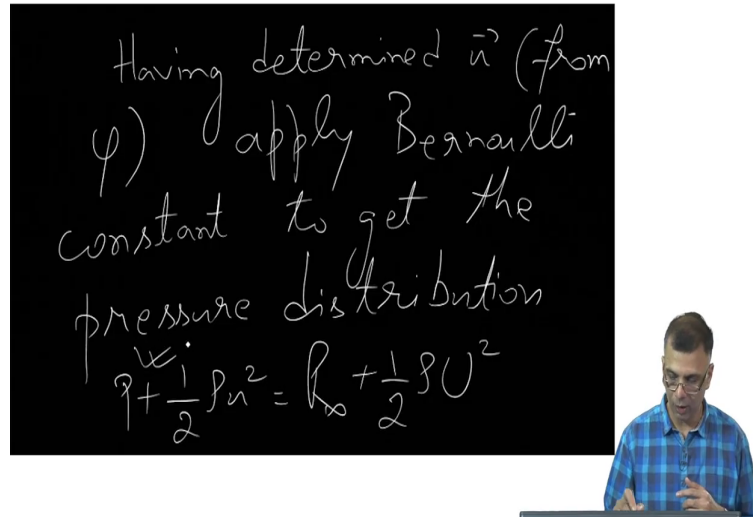 Having determined u⃗ (from
φ) apply Bernoulli
constant to get the
pressure distribution
p + 1/2 ρu² = P∞ + 1/2 ρU²